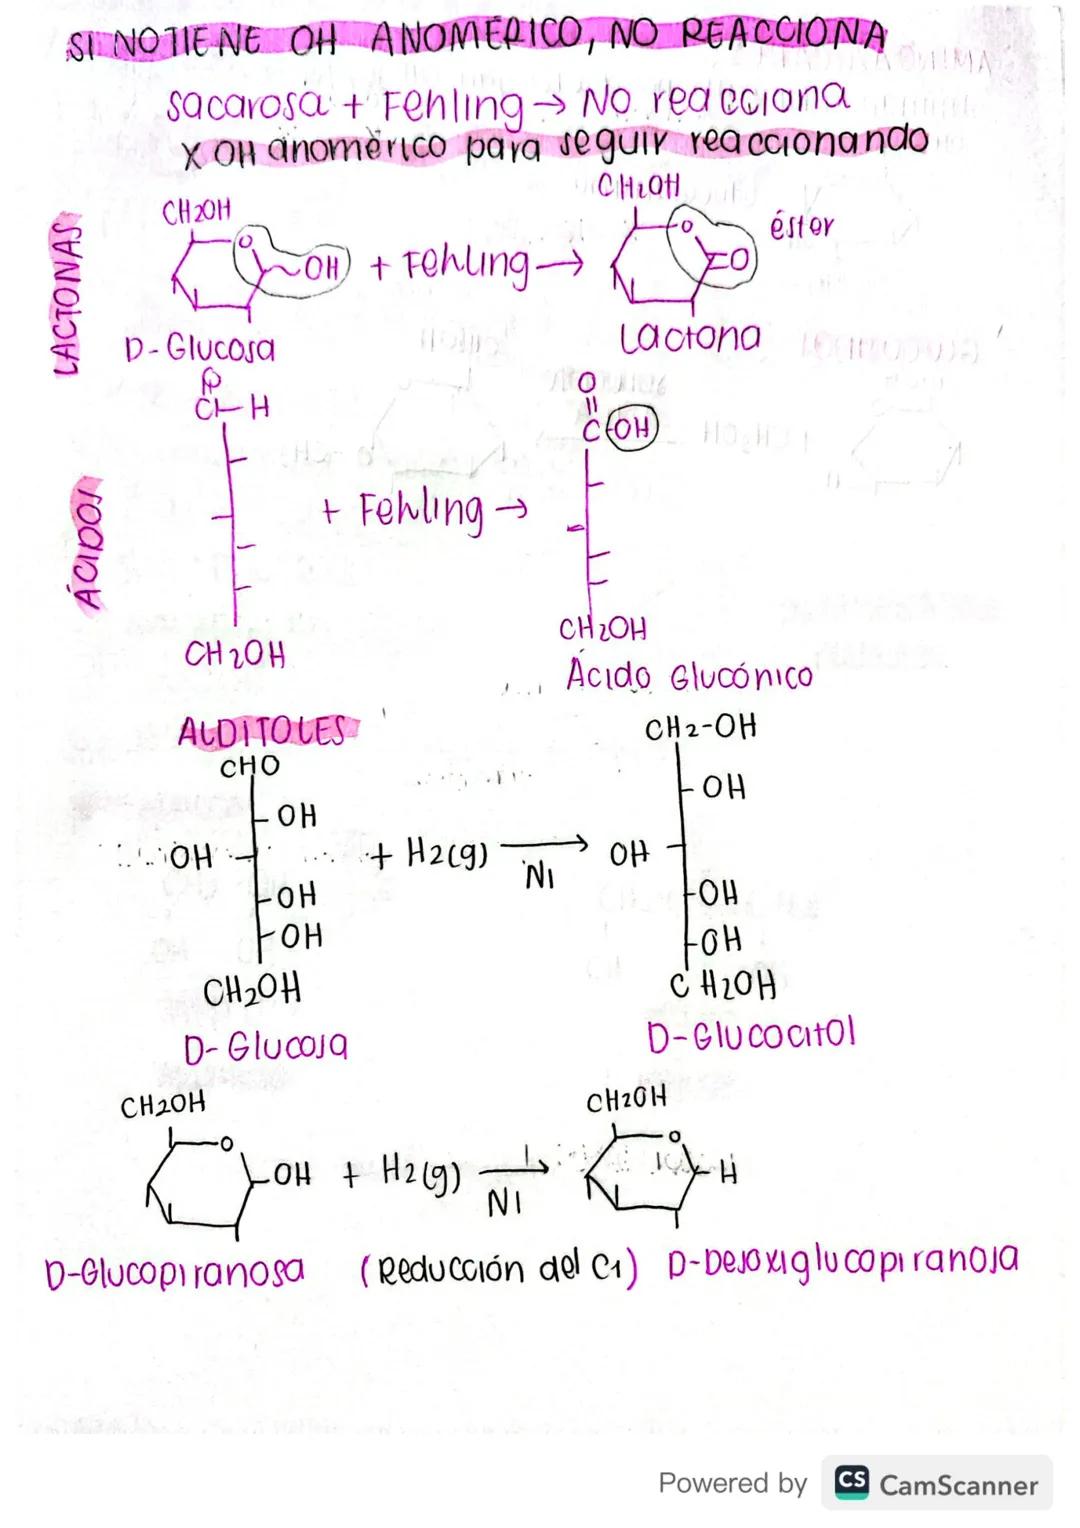 SI NO TIENE OH ANOMÉRICO, NO REACCIONA
Sacarosa + Fehling → No reacciona
X OH anomérico para seguir reaccionando
LACTONAS
CH2OH
O
OH + Fehling →
CH2OH
O
O
éster
D-Glucosa
Lactona
ÁCIDOS
O
C-H
+ Fehling →
CH2OH
O
C-OH
CH2OH
Ácido Glucónico
ALDITOLES
CHO
OH
OH
OH
OH
CH2OH
D-Glucosa
+ H2(g) → Ni
CH2-OH
OH
OH
OH
OH
CH2OH
D-Glucocitol
CH2OH
O
OH + H2(g) → Ni
CH2OH
O
H
D-Glucopiranosa (Reducción del C1) D-Desoxiglucopiranosa
Powered by CS CamScanner